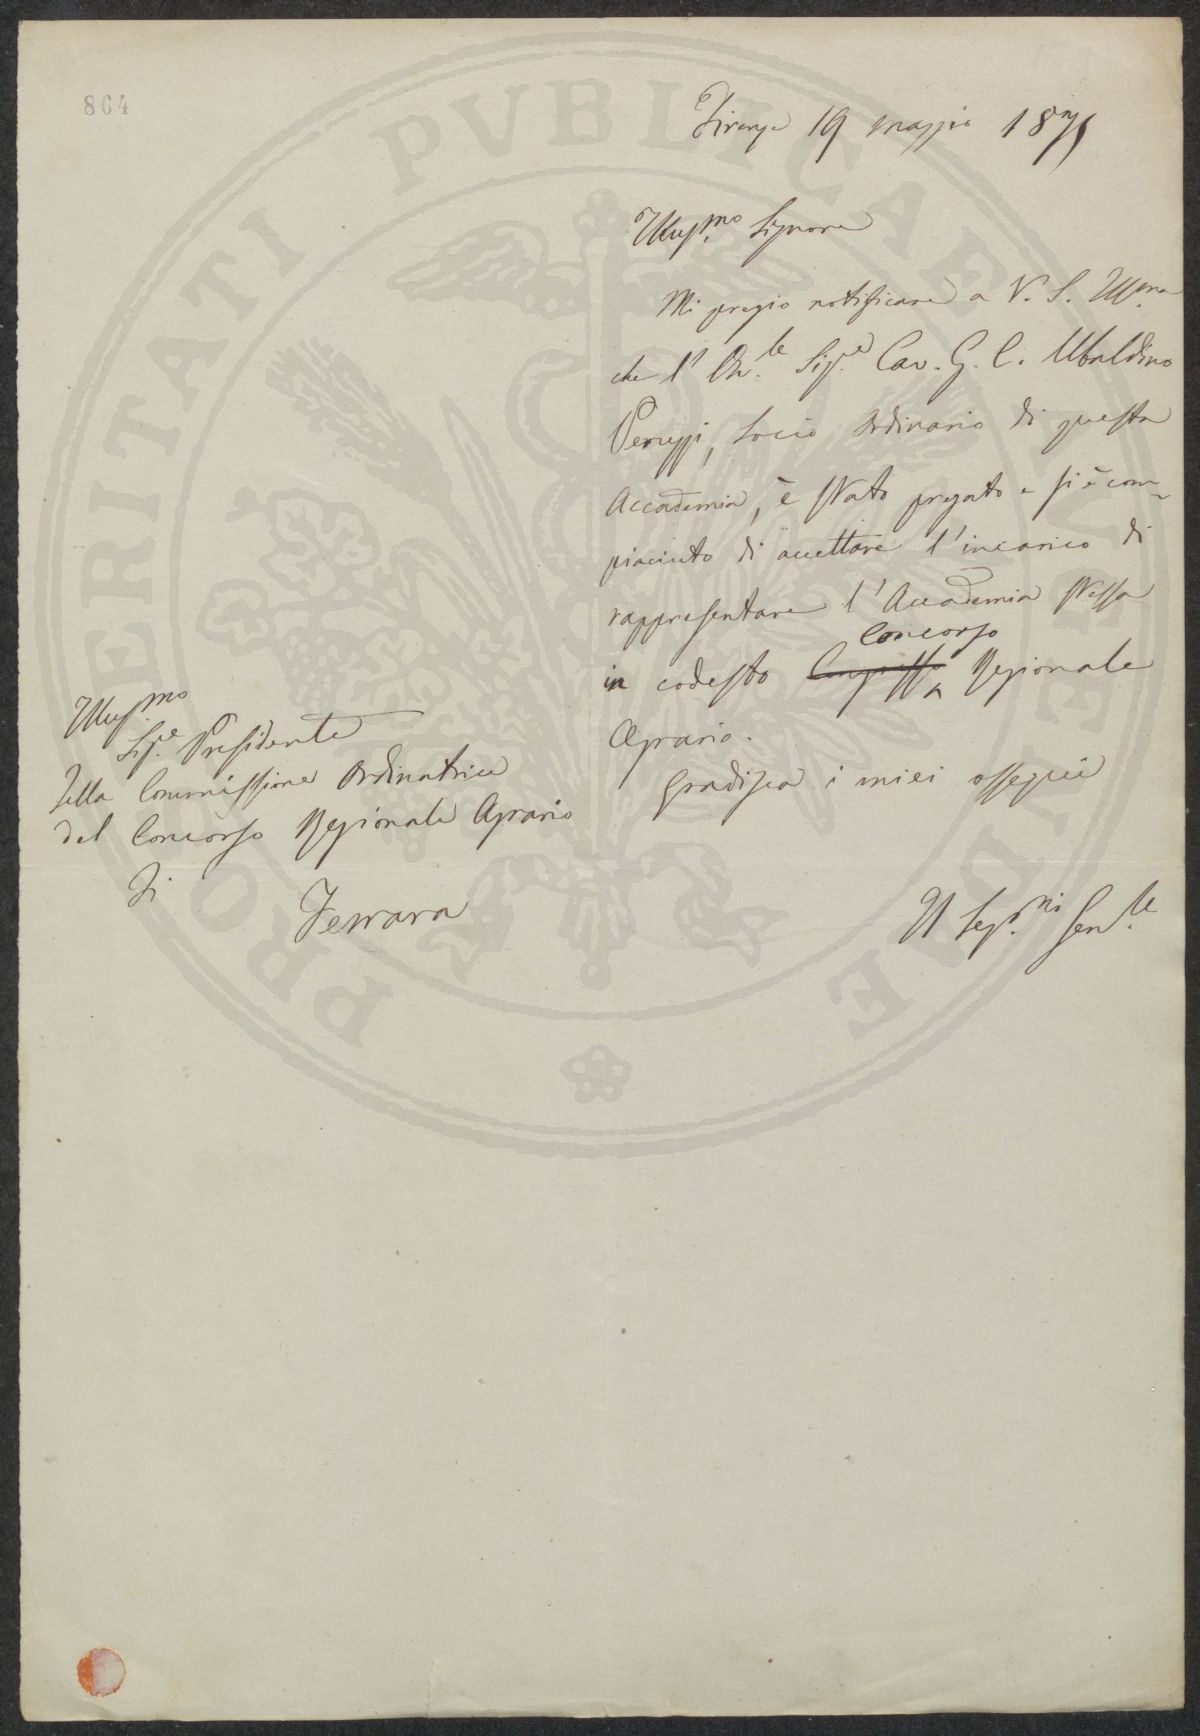 864
Firenze 19 maggio 1875
Illus.mo Signore
Mi pregio notificare a V. S. Ill.ma
che l'On.le Sig.e Cav. G. C. Ubaldino
Peruzzi, Socio Ordinario di questa
Accademia, è stato pregato e si è com-
piaciuto di accettare l'incarico di
rappresentare l'Accademia stessa
Concorso
in codesto Congresso Regionale
Agrario.
Gradisca i miei ossequi
Il Seg.rio Gen.le
Illus.mo
Sig.e Presidente
della Commissione Ordinatrice
del Concorso Regionale Agrario
di Ferrara
PROSPERITATI PVBLICAE AVGENDAE